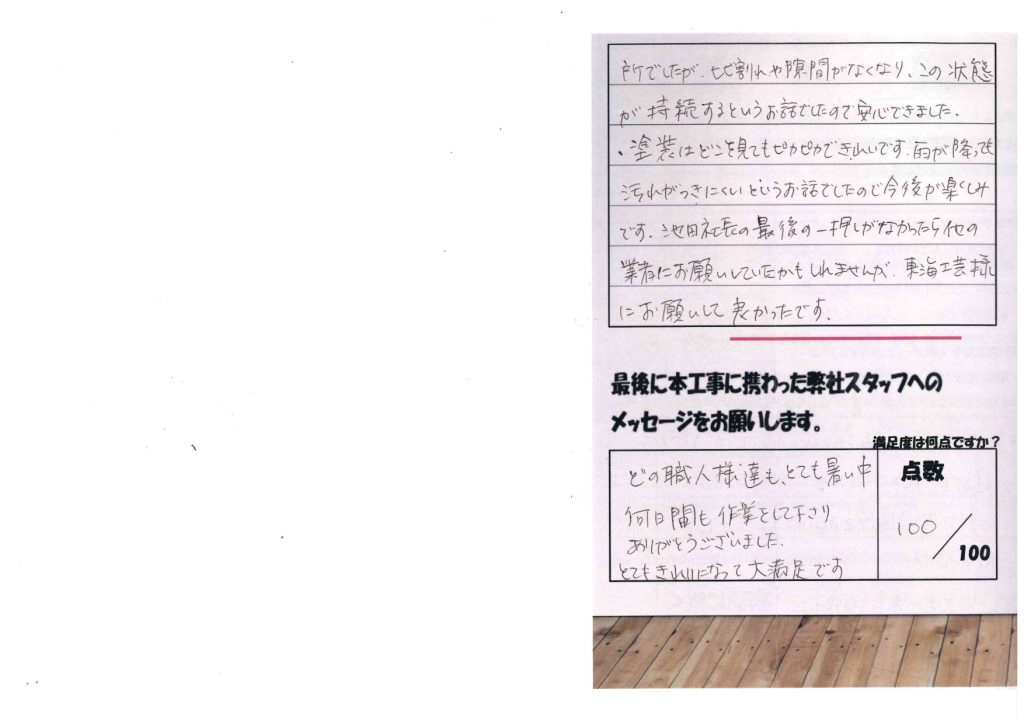 所でしたが、ヒビ割れや隙間がなくなり、この状態
が持続するというお話でしたので安心できました。
・塗装はどこを見てもピカピカできれいです。雨が降っても
汚れがつきにくいというお話でしたので今後が楽しみ
です。池田社長の最後の一押しがなかったら他の
業者にお願いしていたかもしれませんが、東海工芸様
にお願いして良かったです。
最後に本工事に携わった弊社スタッフへの
メッセージをお願いします。
満足度は何点ですか？
点数
どの職人様達も、とても暑い中
何日間も作業をして下さり
ありがとうございました。
とてもきれいになって大満足です
100
/100